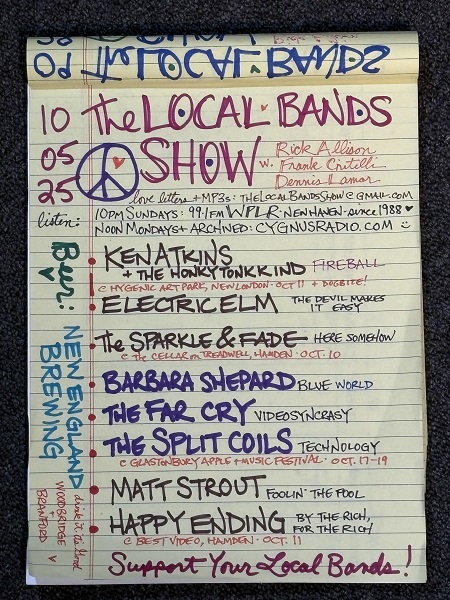 The LOCAL BANDS
10 The LOCAL BANDS
05 SHOW w. Rick Allison
Frank Critelli
25 Dennis Lamar
love letters + MP3s: THELOCALBANDSSHOW@GMAIL.COM
listen: 10PM SUNDAYS: 99.1FM WPLR NEW HAVEN - since 1988 ♥
NOON MONDAYS + ARCHIVED: CYGNUSRADIO.COM
Beer: NEW ENGLAND BREWING
drink it to the end
WOODBRIDGE + BRANFORD
• KEN ATKINS
+ THE HONKYTONK KIND FIREBALL
@ HYGENIC ART PARK, NEW LONDON · OCT 11 + DOGBITE!
• ELECTRIC ELM THE DEVIL MAKES
IT EASY
• the SPARKLE & FADE HERE SOMEHOW
@ THE CELLAR on TREADWELL, HAMDEN · OCT. 10
• BARBARA SHEPARD BLUE WORLD
• THE FAR CRY VIDEOSYNCRASY
• THE SPLIT COILS TECHNOLOGY
@ GLASTONBURY APPLE + MUSIC FESTIVAL · OCT. 17-19
• MATT STROUT FOOLIN' THE FOOL
• HAPPY ENDING BY THE RICH,
FOR THE RICH
@ BEST VIDEO, HAMDEN · OCT. 11
Support Your Local Bands!